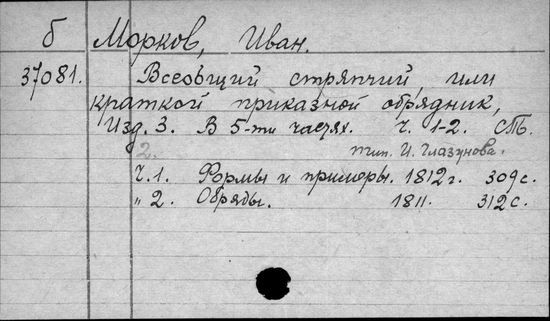 б Морков, Иван.
37081. Всеобщий стряпчий, или
краткой приказной обрядник,
Изд. 3. В 5-ти частях. Ч. 1-2. СПб.
2. тип. И. Глазунова.
Ч.1. Формы и примеры. 1812г. 309с.
" 2. Обряды. 1811. 312с.